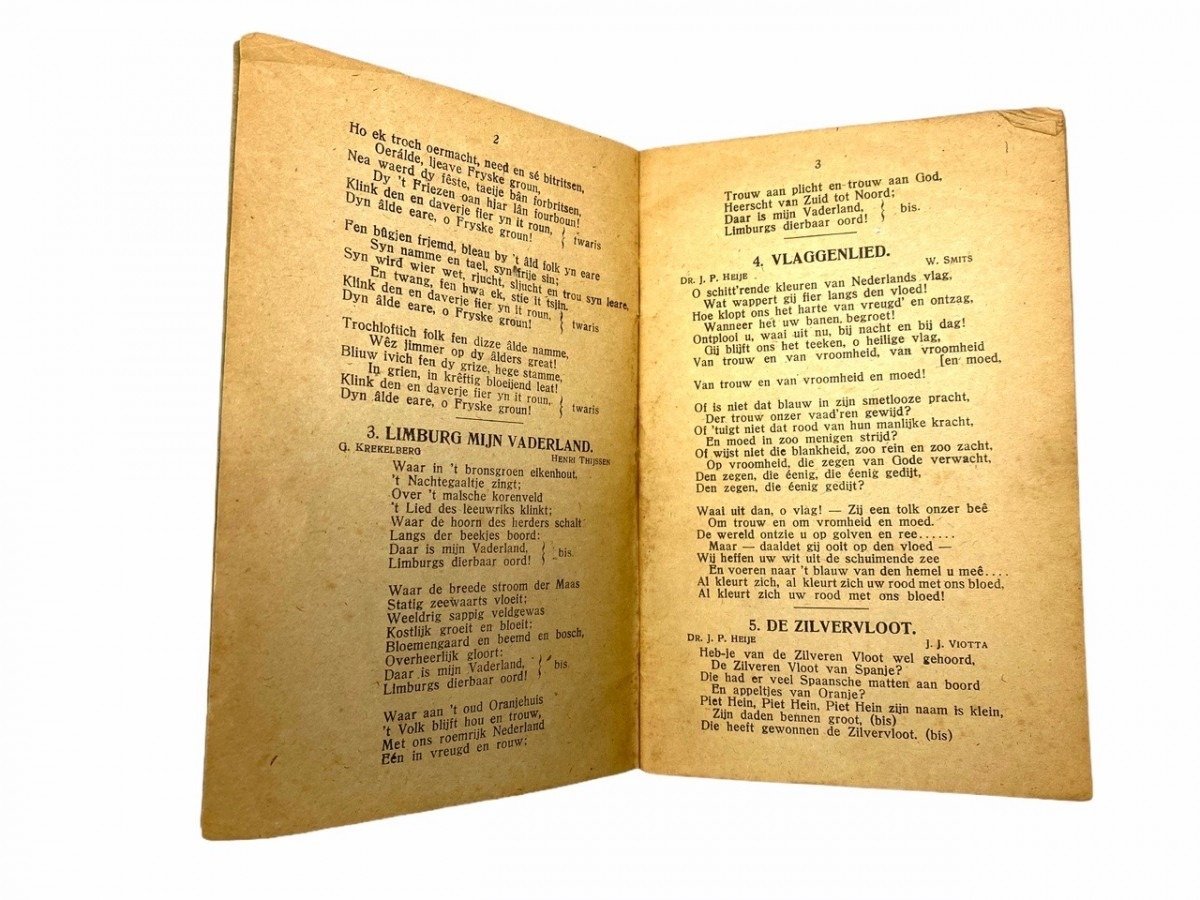 2
Ho ek troch oermacht, need en sé bitritsen,
Oerálde, ljeave Fryske groun,
Nea waerd dy fêste, taeije bân forbritsen,
Dy 't Friezen oan hjar lân fourboun!
Klink den en daverje fier yn it roun,
Dyn âlde eare, o Fryske groun! } twaris
Fen bûgjen frjemd, bleau by 't âld folk yn eare
Syn namme en tael, syn frije sin;
Syn wird wier wet, rjucht, sljucht en trou syn leare,
En twang, fen hwa ek, stie it tsjin.
Klink den en daverje fier yn it roun,
Dyn âlde eare, o Fryske groun! } twaris
Trochloftich folk fen dizze âlde namme,
Wêz jimmer op dy âlders great!
Bliuw ivich fen dy grize, hege stamme,
In grien, in krêftig bloeijend leat!
Klink den en daverje fier yn it roun,
Dyn âlde eare, o Fryske groun! } twaris
3. LIMBURG MIJN VADERLAND.
G. KREKELBERG HENRI THIJSSEN
Waar in 't bronsgroen eikenhout,
't Nachtegaaltje zingt;
Over 't malsche korenveld
't Lied des leeuwriks klinkt;
Waar de hoorn des herders schalt
Langs der beekjes boord:
Daar is mijn Vaderland,
Limburgs dierbaar oord! } bis.
Waar de breede stroom der Maas
Statig zeewaarts vloeit;
Weeldrig sappig veldgewas
Kostlijk groeit en bloeit;
Bloemengaard en beemd en bosch,
Overheerlijk gloort:
Daar is mijn Vaderland,
Limburgs dierbaar oord! } bis.
Waar aan 't oud Oranjehuis
't Volk blijft hou en trouw,
Met ons roemrijk Nederland
Eén in vreugd en rouw;
3
Trouw aan plicht en trouw aan God,
Heerscht van Zuid tot Noord;
Daar is mijn Vaderland,
Limburgs dierbaar oord! } bis.
4. VLAGGENLIED.
DR. J. P. HEIJE W. SMITS
O schitt'rende kleuren van Nederlands vlag,
Wat wappert gij fier langs den vloed!
Hoe klopt ons het harte van vreugd' en ontzag,
Wanneer het uw banen, begroet!
Ontplooi u, waai uit nu, bij nacht en bij dag!
Gij blijft ons het teeken, o heilige vlag,
Van trouw en van vroomheid, van vroomheid
[en moed,
Van trouw en van vroomheid en moed!
Of is niet dat blauw in zijn smetlooze pracht,
Der trouw onzer vaad'ren gewijd?
Of 'tuigt niet dat rood van hun manlijke kracht,
En moed in zoo menigen strijd?
Of wijst niet die blankheid, zoo rein en zoo zacht,
Op vroomheid, die zegen van Gode verwacht,
Den zegen, die éenig, die éenig gedijt,
Den zegen, die éenig gedijt?
Waai uit dan, o vlag! — Zij een tolk onzer beê
Om trouw en om vromheid en moed.
De wereld ontzie u op golven en ree......
Maar — daaldet gij ooit op den vloed —
Wij heffen uw wit uit de schuimende zee
En voeren naar 't blauw van den hemel u meê....
Al kleurt zich, al kleurt zich uw rood met ons bloed,
Al kleurt zich uw rood met ons bloed!
5. DE ZILVERVLOOT.
DR. J. P. HEIJE J. J. VIOTTA
Heb-je van de Zilveren Vloot wel gehoord,
De Zilveren Vloot van Spanje?
Die had er veel Spaansche matten aan boord
En appeltjes van Oranje?
Piet Hein, Piet Hein, Piet Hein zijn naam is klein,
Zijn daden bennen groot, (bis)
Die heeft gewonnen de Zilvervloot. (bis)